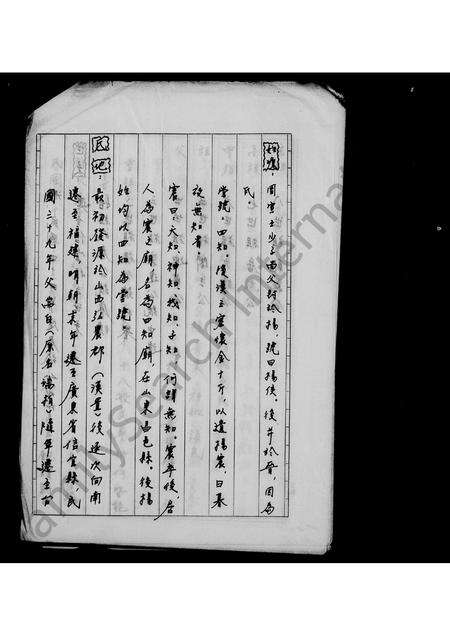 姓源：周宣王少子尚父封於楊，號曰楊侯，後并於晉，因為
氏。
堂號：四知。後漢王密懷金十斤，以遺楊震，曰暮
夜無知者，
震曰，天知，神知，我知，子知，何謂無知，震卒後，居
人為震立廟，名為四知廟，在山東昌邑縣，後楊
始均以四知為堂號
氏地：最初發源於山西弘農郡（漢置）後逐次向南
遷至福建，明朝末年遷至廣東省信宜縣，民
國三十九年父 （原名 ）隨軍遷至台
FamilySearch International